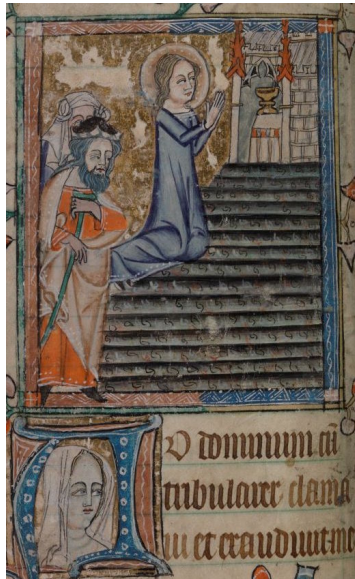 AD dominum cū
tribularer clama
ui et exaudiuit me